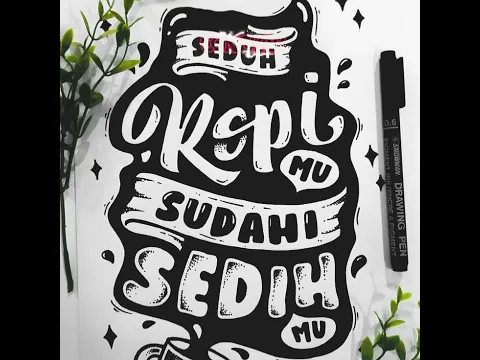 SEDUH
Kopi
MU
SUDAHI
SEDIH
MU
0.6
SNOWMAN DRAWING PEN